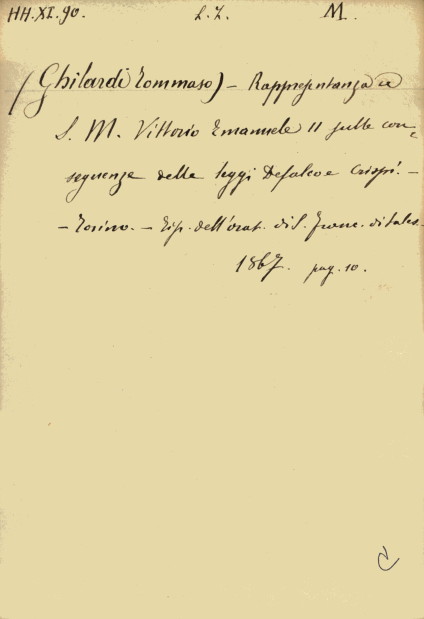 HH.XI.90. L.L. M.
(Ghilardi Tommaso) - Rappresentanza a
S. M. Vittorio Emanuele II sulle con=
seguenze delle leggi Defalco e Crispi. -
- Torino. - Tip. dell'orat. di S. Franc. di Sales -
1867. pag. 10.